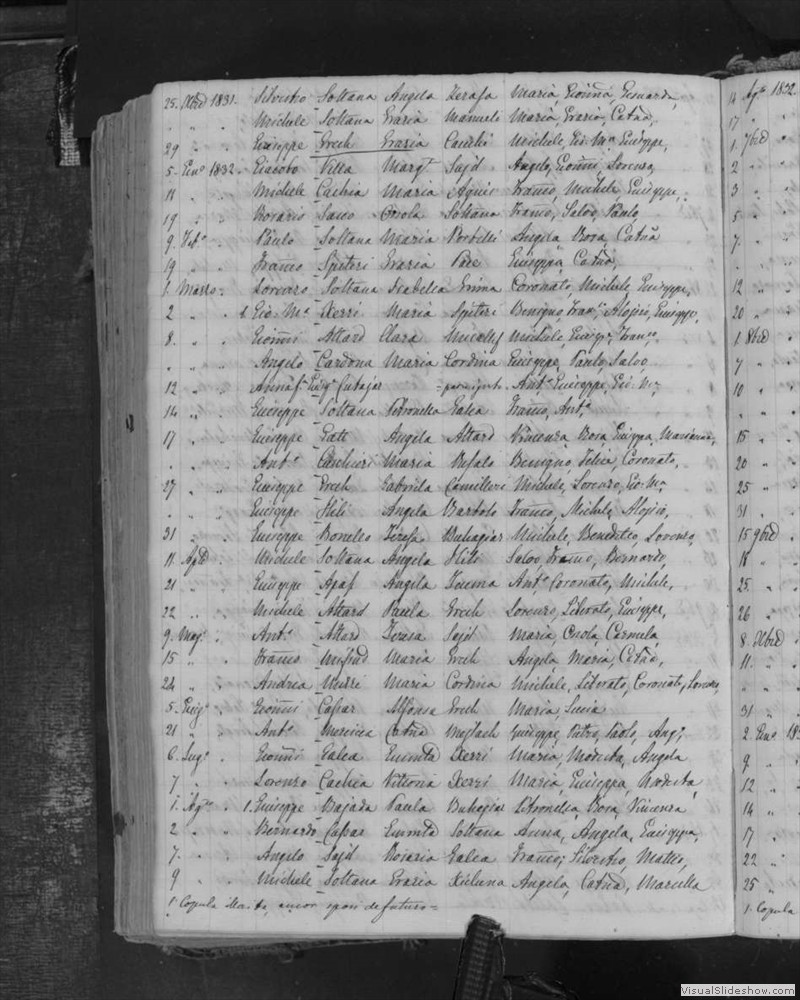 25. Xbre 1831. Silvestro Soltana Angela Xerasa Maria, Gioñi, Bernarda,
" " " Michele Soltana Grazia Mamuli Maria, Grazia, Catña,
29 " . Giuseppe Grech Grazia Michele, Gio: Mª Giuseppe,
5. Genº 1832. Giacobo Vella Margª Sajd Angelo, Gioñi, Lorenzo,
11 " . Michele Cachia Maria Agius Franco, Michele, Giuseppe,
19 " . Rosario Sacco Orsola Soltana Franco, Salvo, Paolo,
9. Febº . Paulo Soltana Maria Portelli Angela Rosa, Catña
19 " . Franco Spiteri Grazia Pace Giuseppa, Catña,
1. Marzo . Lorenzo Soltana Isabella Grima Coronato, Michele, Giuseppe,
2 " 1. Gio: Mª Xerri Maria Spiteri Benigno, Franco, Alojsio, Giuseppe,
8. " . Gioñi Attard Clara Micallef Michele, Giuse, Franco
" " . Angelo Cardona Maria Cordina Giuseppe, Paolo, Salvo
12 " Antº Giuseppe, Gio: Mª
14 " . Giuseppe Soltana Petronella Galea Franco, Antº
17 " . Giuseppe Gatt Angela Attard Vincenza, Rosa, Giuseppa, Marianna,
" " . Antº Maria Refalo Benigno, Felice, Coronato,
27 " . Giuseppe Grech Gabriela Camilleri Michele, Lorenzo, Gio: Mª
" " . Giuseppe Hili Angela Bartolo Franco, Michele, Alojsio,
31 " . Giuseppe Bonello Teresa Buhagiar Michele, Benedetto, Lorenzo,
11. Aple . Michele Soltana Angela Hili Salvo, Franco, Bernardo,
21 " . Giuseppe Apap Angela Zuema Antº Coronato, Michele,
22 " . Michele Attard Paula Grech Lorenzo, Liberato, Giuseppe,
9. Magº . Antº Attard Teresa Sajd Maria, Orsola, Carmela
15 " . Franco Mifsud Maria Grech Angela Maria, Catña,
24 " . Andrea Maria Cordina Michele, Liberato, Coronato, Lorenzo,
5. Giugº . Gioñi Caspar Alfonsa Grech Maria, Lucia
21 " . Antº Mercieca Catña Mejlach Giuseppe, Pietro, Paolo, Angº
6. Lugº . Gioñi Galea Xerri Maria, Modesta, Angela
7 " . Lorenzo Cachia Vittoria Xerri Maria Giuseppa, Modesta,
1. Agº " 1. Giuseppe Bajada Paula Buhagiar Petronella, Rosa, Vincenza
2 " " Bernardo Caspar Soltana Anna, Angela, Giuseppa,
7. " . Angelo Sajd Rosaria Galea Franco, Silvestro, Matteo,
9 " . Michele Soltana Grazia Xicluna Angela, Catña, Marcella
1. Copula de futuro =
14 Agº 1832.
17 " .
1. 7bre
2 " .
3 " .
5 " .
7. " .
" " .
12 " .
20 " .
1. 8bre
7 " .
10 " .
" " .
15 " .
20 " .
25 " .
31 " .
15 9bre
18 " .
25. " .
26 " .
8. Xbre
11. " .
" " .
31 " .
2. Genº 183
9 " .
12 " .
14 " .
17 " .
22 " .
25 " .
1. Copula
VisualSlideshow.com